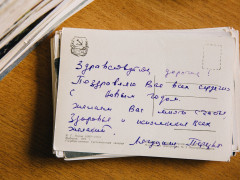 Здравствуйте, дорогие!
Поздравляю Вас всех сердечно
с Новым годом.
Желаю Вам много счастья
Здоровья и исполнения всех
желаний.